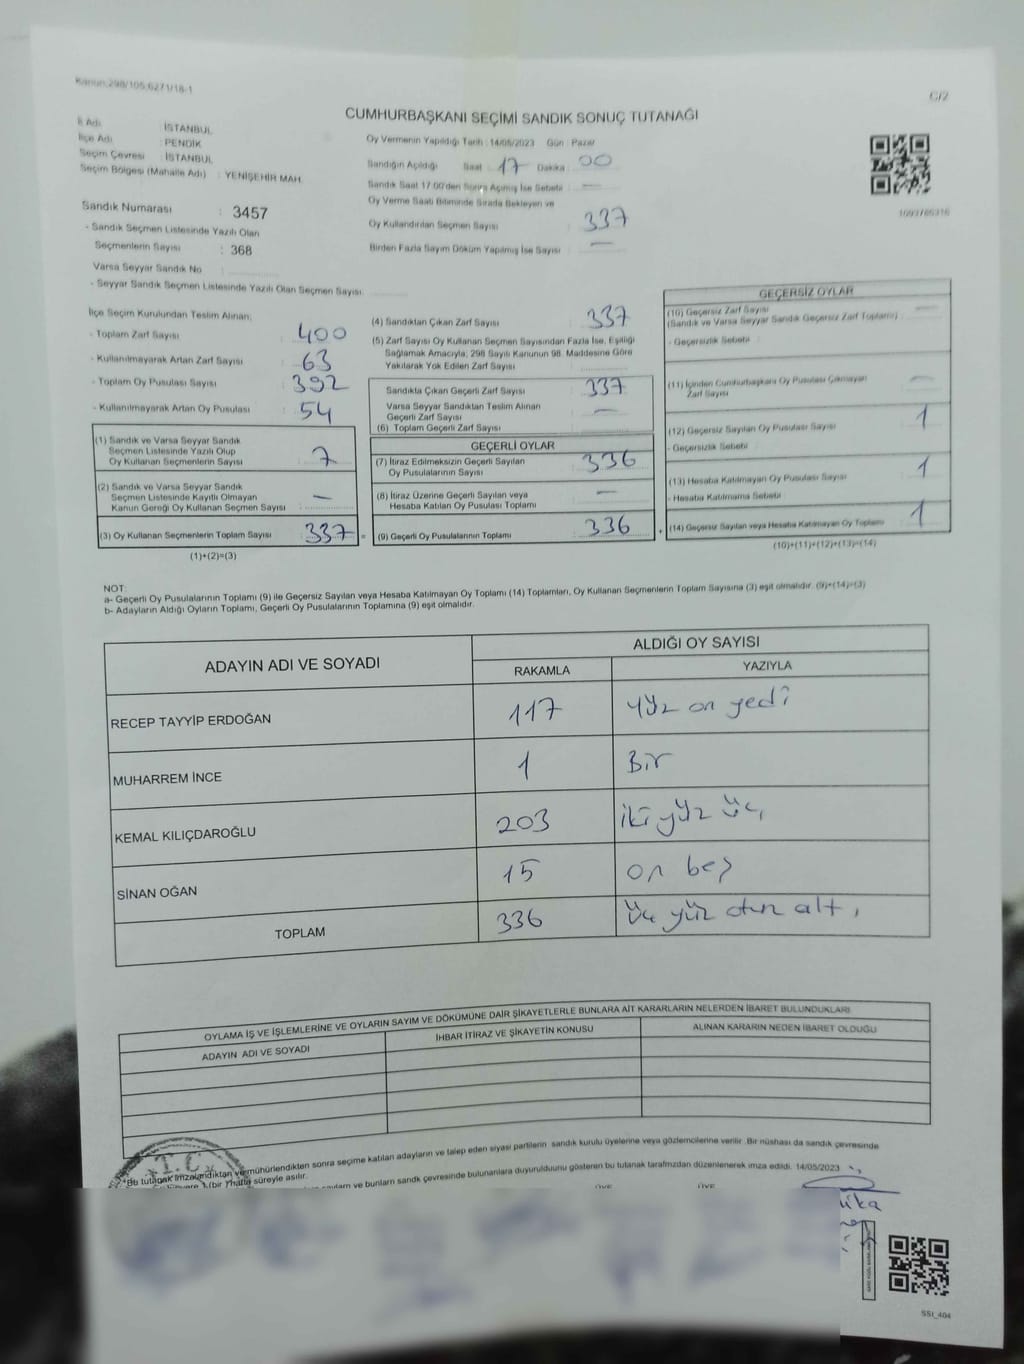 Kanun:298/105;6271/18-1
C/2
CUMHURBAŞKANI SEÇİMİ SANDIK SONUÇ TUTANAĞI
İl Adı : İSTANBUL
İlçe Adı : PENDİK
Seçim Çevresi : İSTANBUL
Seçim Bölgesi (Mahalle Adı) : YENİŞEHİR MAH.
Oy Vermenin Yapıldığı Tarih : 14/05/2023 Gün : Pazar
Sandığın Açıldığı Saat : 17 Dakika : 00
Sandık Saat 17:00'den Sonra Açılmış İse Sebebi : —
Oy Verme Saati Bitiminde Sırada Bekleyen ve
Oy Kullandırılan Seçmen Sayısı : 337
Birden Fazla Sayım Döküm Yapılmış İse Sayısı : —
Sandık Numarası : 3457
- Sandık Seçmen Listesinde Yazılı Olan
Seçmenlerin Sayısı : 368
Varsa Seyyar Sandık No :
- Seyyar Sandık Seçmen Listesinde Yazılı Olan Seçmen Sayısı:
İlçe Seçim Kurulundan Teslim Alınan:
- Toplam Zarf Sayısı : 400
- Kullanılmayarak Artan Zarf Sayısı : 63
- Toplam Oy Pusulası Sayısı : 392
- Kullanılmayarak Artan Oy Pusulası : 54
(1) Sandık ve Varsa Seyyar Sandık
Seçmen Listesinde Yazılı Olup
Oy Kullanan Seçmenlerin Sayısı : 7
(2) Sandık ve Varsa Seyyar Sandık
Seçmen Listesinde Kayıtlı Olmayan
Kanun Gereği Oy Kullanan Seçmen Sayısı : —
(3) Oy Kullanan Seçmenlerin Toplam Sayısı : 337
(1)+(2)=(3)
(4) Sandıktan Çıkan Zarf Sayısı : 337
(5) Zarf Sayısı Oy Kullanan Seçmen Sayısından Fazla İse, Eşitliği
Sağlamak Amacıyla; 298 Sayılı Kanunun 98. Maddesine Göre
Yakılarak Yok Edilen Zarf Sayısı :
Sandıkta Çıkan Geçerli Zarf Sayısı : 337
Varsa Seyyar Sandıktan Teslim Alınan
Geçerli Zarf Sayısı : —
(6) Toplam Geçerli Zarf Sayısı :
GEÇERLİ OYLAR
(7) İtiraz Edilmeksizin Geçerli Sayılan
Oy Pusulalarının Sayısı : 336
(8) İtiraz Üzerine Geçerli Sayılan veya
Hesaba Katılan Oy Pusulası Toplamı : —
(9) Geçerli Oy Pusulalarının Toplamı : 336
GEÇERSİZ OYLAR
(10) Geçersiz Zarf Sayısı : —
(Sandık ve Varsa Seyyar Sandık Geçersiz Zarf Toplamı)
- Geçersizlik Sebebi :
(11) İçinden Cumhurbaşkanı Oy Pusulası Çıkmayan : —
Zarf Sayısı
(12) Geçersiz Sayılan Oy Pusulası Sayısı : 1
- Geçersizlik Sebebi :
(13) Hesaba Katılmayan Oy Pusulası Sayısı : 1
- Hesaba Katılmama Sebebi :
(14) Geçersiz Sayılan veya Hesaba Katılmayan Oy Toplamı : 1
(10)+(11)+(12)+(13)=(14)
NOT:
a- Geçerli Oy Pusulalarının Toplamı (9) ile Geçersiz Sayılan veya Hesaba Katılmayan Oy Toplamı (14) Toplamları, Oy Kullanan Seçmenlerin Toplam Sayısına (3) eşit olmalıdır. (9)+(14)=(3)
b- Adayların Aldığı Oyların Toplamı, Geçerli Oy Pusulalarının Toplamına (9) eşit olmalıdır.
ADAYIN ADI VE SOYADI
ALDIĞI OY SAYISI
RAKAMLA YAZIYLA
RECEP TAYYİP ERDOĞAN 117 Yüz on yedi
MUHARREM İNCE 1 Bir
KEMAL KILIÇDAROĞLU 203 iki yüz üç
SİNAN OĞAN 15 on beş
TOPLAM 336 üç yüz otuz altı
OYLAMA İŞ VE İŞLEMLERİNE VE OYLARIN SAYIM VE DÖKÜMÜNE DAİR ŞİKAYETLERLE BUNLARA AİT KARARLARIN NELERDEN İBARET BULUNDUKLARI
ADAYIN ADI VE SOYADI İHBAR İTİRAZ VE ŞİKAYETİN KONUSU ALINAN KARARIN NEDEN İBARET OLDUĞU
T.C.
*Bu tutanak imzalandıktan ve mühürlendikten sonra seçime katılan adayların ve talep eden siyasi partilerin sandık kurulu üyelerine veya gözlemcilerine verilir. Bir nüshası da sandık çevresinde
1 (bir) hafta süreyle asılır.
ve bunların sandık çevresinde bulunanlara duyurulduğunu gösteren bu tutanak tarafımızdan düzenlenerek imza edildi. 14/05/2023
ÜYE ÜYE
SSt_404